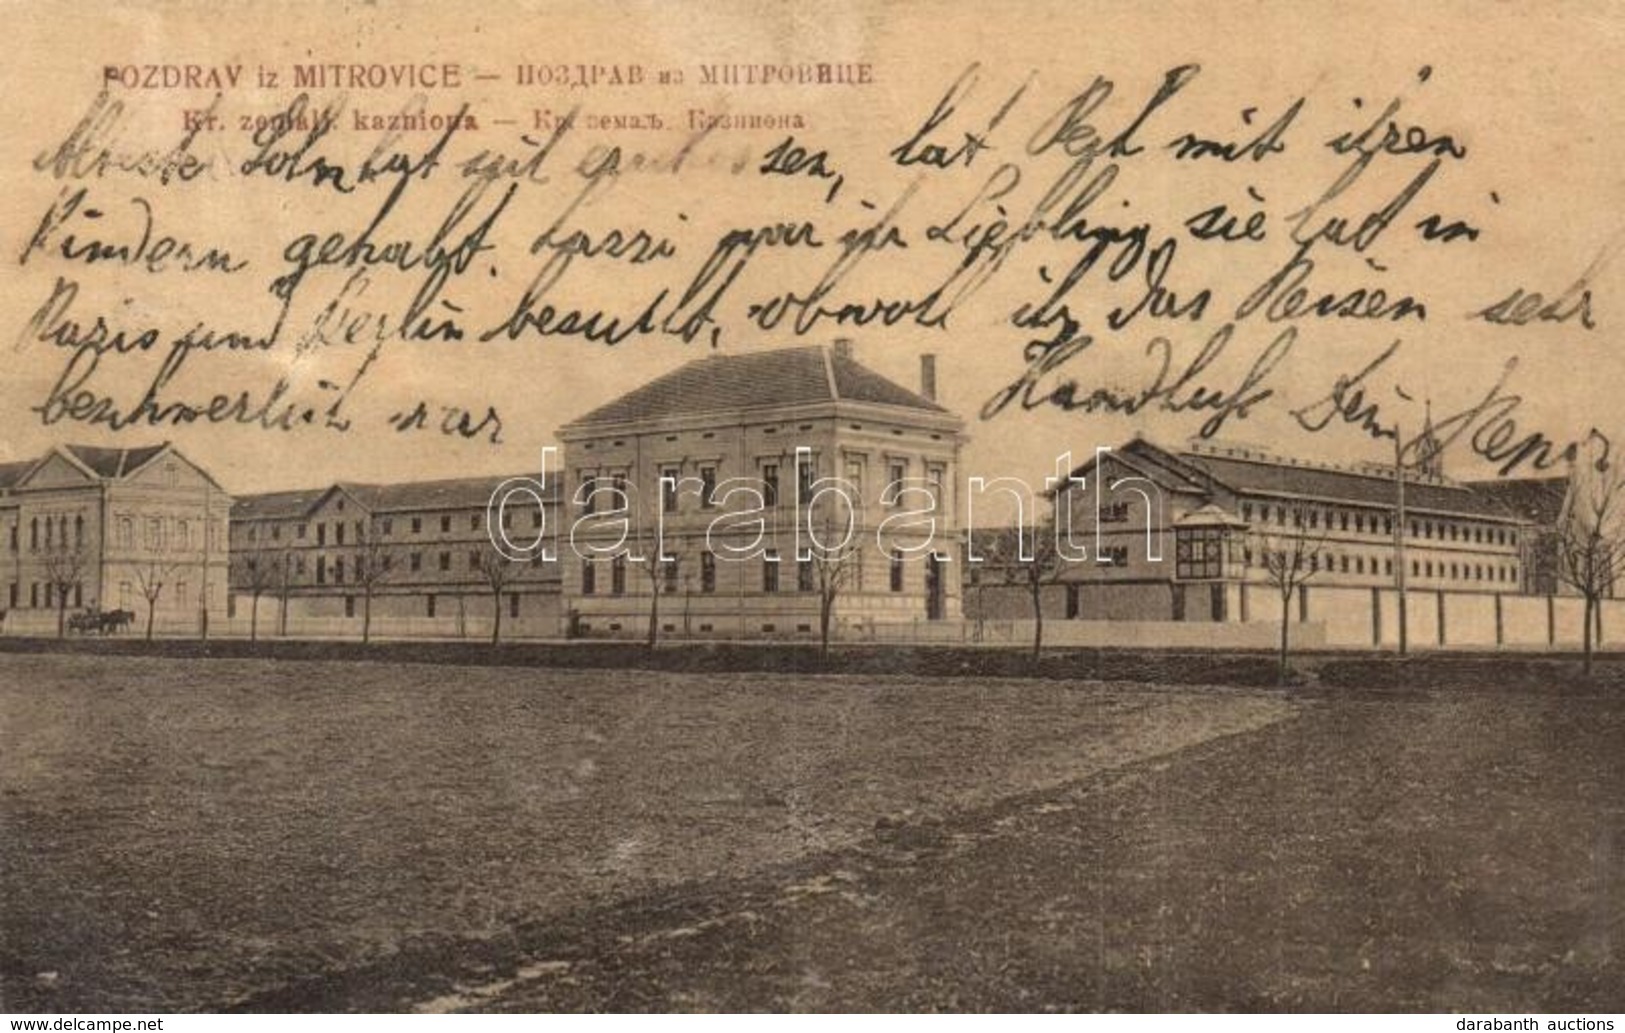 POZDRAV iz MITROVICE — ПОЗДРАВ из МИТРОВИЦЕ
Kr. zemalj. kazniona — Кр. земаљ. Казниона
Sohn hat mit sen, hat Pech mit ihren
Kindern gehabt. Lassi war ihr Liebling, sie hat in
Paris und Berlin besucht, obwohl ihr das Reisen sehr
beschwerlich war Handkuß Dein
darabanth
www.darabanth.com
darabanth auctions